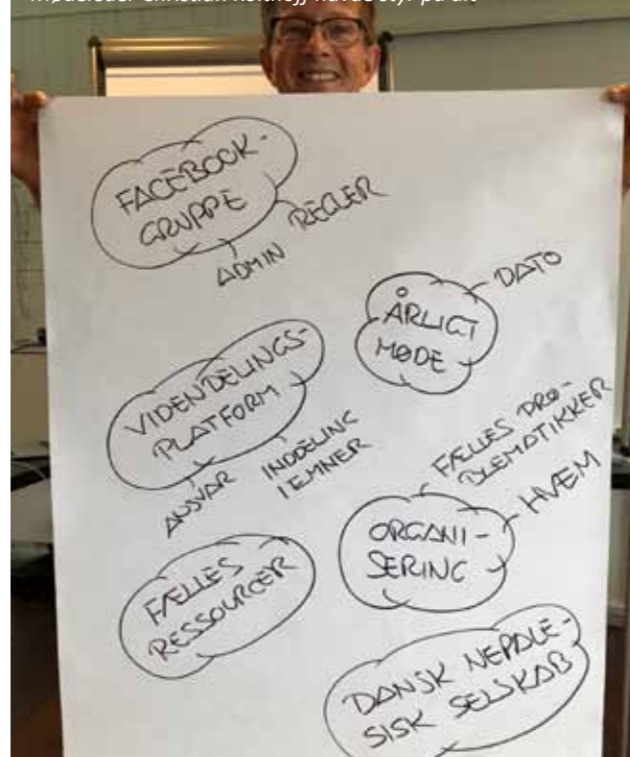 FACEBOOK-
GRUPPE
REGLER
ADMIN
ÅRLIGT
MØDE
DATO
VIDENDELINGS-
PLATFORM
ANSVAR
INDDELING
I EMNER
FÆLLES PRO-
BLEMATIKKER
HVEM
ORGANI-
SERING
FÆLLES
RESSOURCER
DANSK NEPALE-
SISK SELSKAB